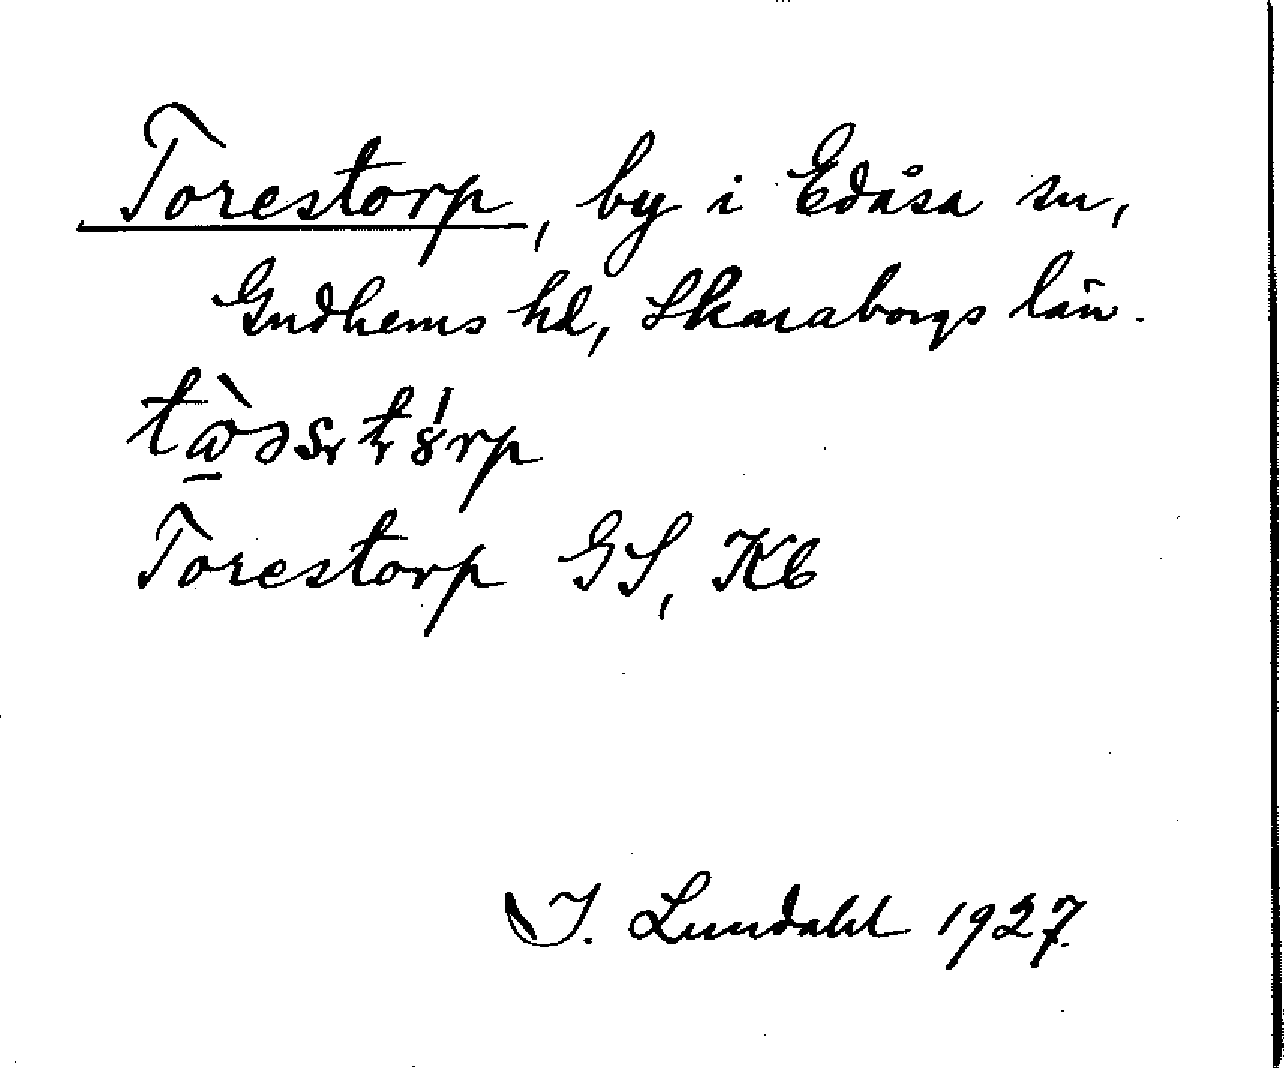 Torestorp, by i Edåsa sn,
Gudhems hd, Skaraborgs län.
Torestorp GS, Kb
I. Lundahl 1927.